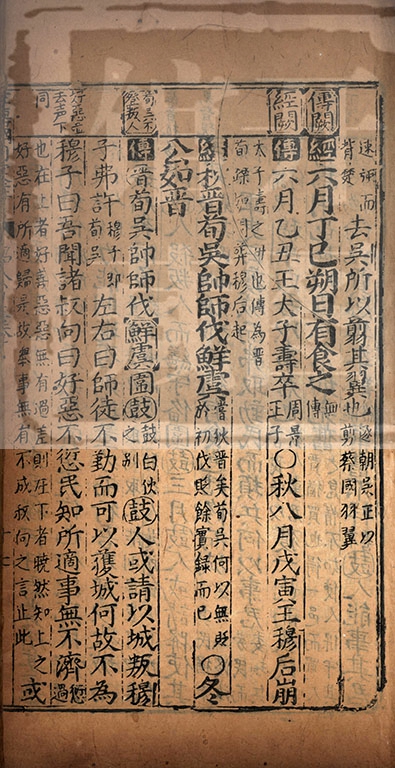 速而背楚 去吳所以翦其翼也 逐朝吳正以剪蔡國羽翼
傳闕
經六月丁巳朔日有食之
經闕
傳六月乙丑王大子壽卒 周景王子 ○秋八月戊寅王穆后崩
太子壽之母也傳為晉荀躒如周葬穆后起
經秋晉荀吳帥師伐鮮虞 晉狄晉矣荀吳何以無貶於初伐貶餘實録而已 ○冬
公如晉
荀吳不登叛人
傳晉荀吳帥師伐鮮虞圍鼓 鼓白狄之别 鼓人或請以城叛穆
子弗許 穆子即荀吳 左右曰師徒不勤而可以獲城何故不為
好惡並去声下同
穆子曰吾聞諸叔向曰好惡不愆民知所適事無不濟 愆過
也在上者好善惡惡無有過差則在下者曉然知上之
好惡有所適歸是故舉事無有不成叔向之言止此 或